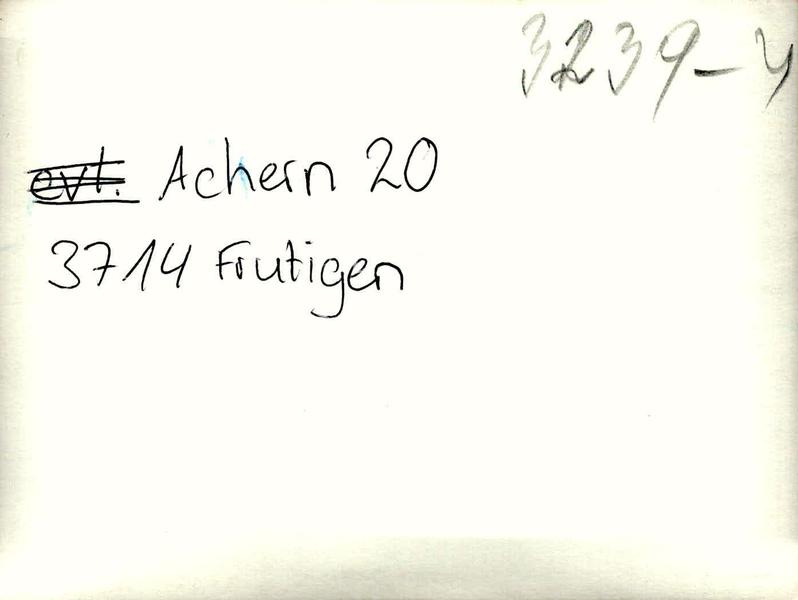 3239-4
evt. Achern 20
3714 Frutigen